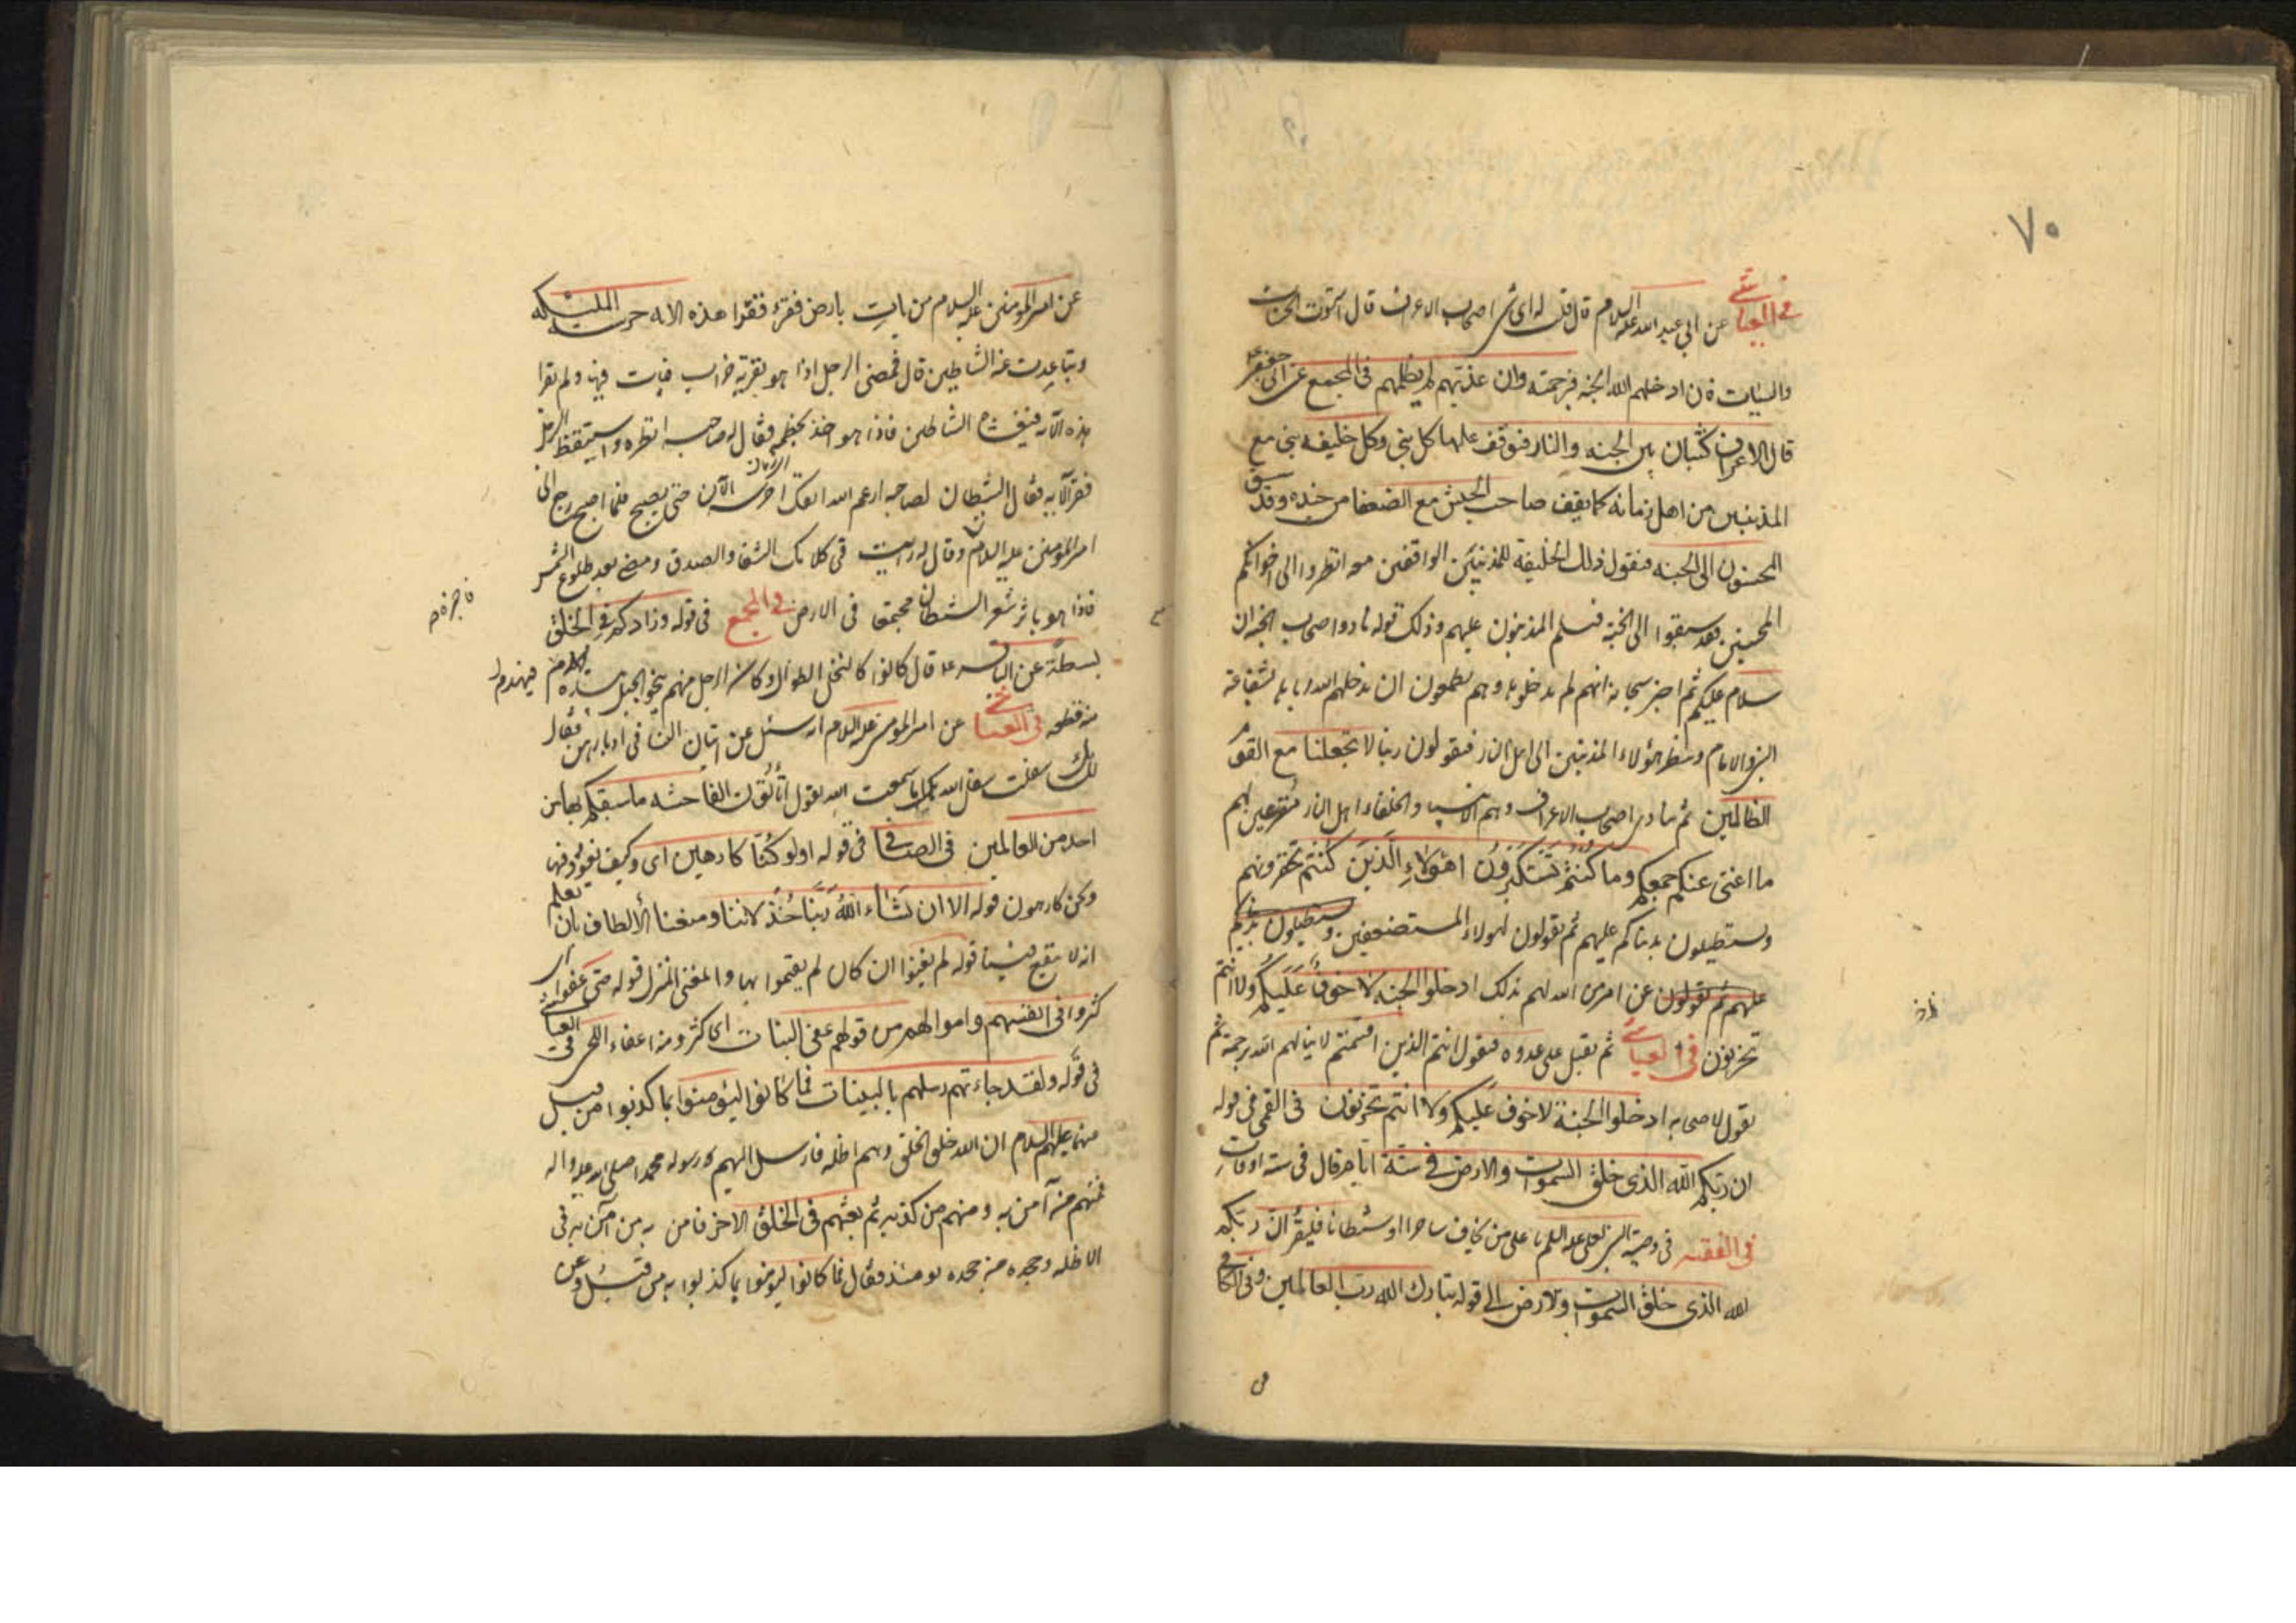 ٧٠
في العياشي عن ابي عبد الله عليه السلام قال قلت له اي شي اصحاب الاعراف قال استوت الحسنات
والسيئات فان ادخلهم الله الجنة فبرحمته وان عذبهم لم يظلمهم في المجمع عن ابي جعفر ع
قال الاعراف كثبان بين الجنة والنار فيوقف عليها كل نبي وكل خليفة نبي مع
المذنبين من اهل زمانه كما يقف صاحب الجيش مع الضعفا من جنده وقد سبق
المحسنون الى الجنة فيقول ذلك الخليفة للمذنبين الواقفين معه انظروا الى اخوانكم
المحسنين قد سبقوا الى الجنة فيسلم المذنبون عليهم وذلك قوله نادوا اصحاب الجنة ان
سلام عليكم ثم اخبر سبحانه انهم لم يدخلوها وهم يطمعون ان يدخلهم الله اياها بشفاعة
النبي والامام وينظر هؤلاء المذنبين الى اهل النار فيقولون ربنا لا تجعلنا مع القوم
الظالمين ثم ينادي اصحاب الاعراف وهم الانبياء والخلفاء اهل النار مقرعين لهم
ما اغنى عنكم جمعكم وما كنتم تستكبرون اهؤلاء الذين كنتم تحقرونهم
وتستطيلون بدنياكم عليهم ثم يقولون لهؤلاء المستضعفين وتستطيلون بدنياكم
عليهم ثم يقولون عن امر من الله لهم بذلك ادخلوا الجنة لا خوف عليكم ولا انتم
تحزنون في العياشي ثم يقبل على عدوه فيقول انتم الذين اقسمتم لا ينالهم الله برحمة ثم
يقول لاصحابه ادخلوا الجنة لا خوف عليكم ولا انتم تحزنون في القمي في قوله
ان ربكم الله الذي خلق السموات والارض في ستة ايام قال في ستة اوقات
في الفقيه في وصية النبي لعلي عليه السلم يا علي من يخاف ساحرا او شيطانا فليقرأ ان ربكم
الله الذي خلق السموات والارض الى قوله تبارك الله رب العالمين وفي الكافي
عن امير المؤمنين عليه السلام من بات بارض قفر فقرا هذه الاية حرسته الملئكة
وتباعدت عنه الشياطين قال فمضى الرجل اذا هو بقرية خراب فبات فيها ولم يقرا
هذه الآية فتغشاه الشياطين فاذا هو اخذ بخطمه فقال له صاحبه انظره واستيقظ الرجل
فقرأ الآية فقال الشيطان لصاحبه ارغم الله انفك احرسه الآن حتى يصبح فلما اصبح رجع الى
امير المؤمنين عليه السلام وقال له رايت في كلامك الشفا والصدق ومضى بعد طلوع الشمس
فاذا هو باثر شعر الشيطان مجتمعا في الارض في المجمع في قوله وزادكم في الخلق
بسطة عن الباقر ع قال كانوا كالنخل الطوال وكان الرجل منهم ينحو الجبل بيده فيهدم
منه قطعة في العياشي عن امير المؤمنين عليه السلام انه سئل عن اتيان النساء في ادبارهن فقال
سفلت سفل الله بك اما سمعت الله يقول أتأتون الفاحشة ما سبقكم بها من
احد من العالمين في الصافي في قوله اولو كنا كارهين اي وكيف نعود فيها
ونحن كارهون قوله الا ان يشاء الله ربنا خذلاننا ومنعنا الألطاف بان يعلم
انه لا ينفع فينا قوله لم يغنوا ان كان لم يقيموا بها والمغنى المنزل قوله حتى عفوا اي
كثروا في انفسهم واموالهم من قولهم عفى النبات اي كثر ومنه اعفاء اللحى في العياشي
في قوله ولقد جاءتهم رسلهم بالبينات فما كانوا ليؤمنوا بما كذبوا من قبل
عنهما عليهم السلام ان الله خلق الخلق وهم اظلة فارسل اليهم رسوله محمدا صلى الله عليه واله
فمنهم من آمن به ومنهم من كذبه ثم بعثهم في الخلق الاخر فامن به من آمن به في
الاظلة وجحده من جحده يومئذ فقال فما كانوا ليؤمنوا بما كذبوا به من قبل وعن